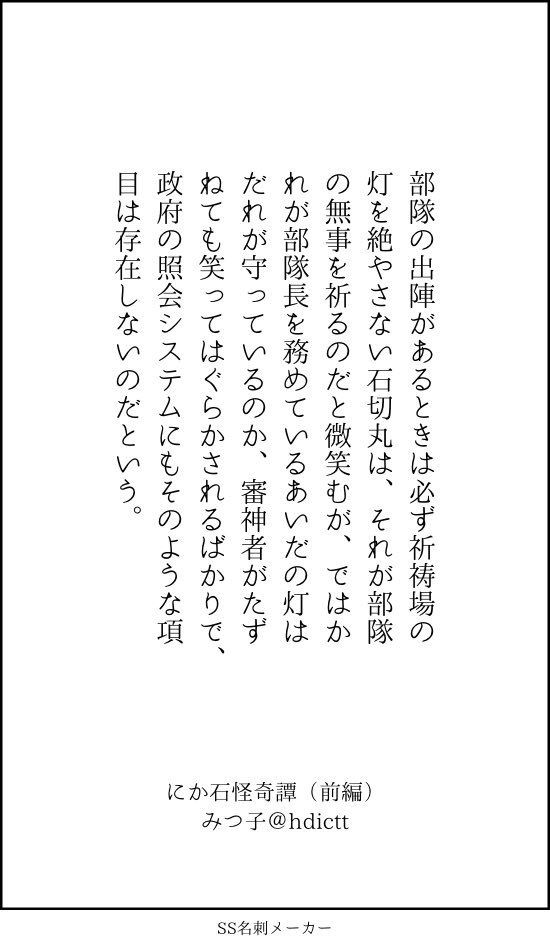 部隊の出陣があるときは必ず祈祷場の
灯を絶やさない石切丸は、それが部隊
の無事を祈るのだと微笑むが、ではか
れが部隊長を務めているあいだの灯は
だれが守っているのか、審神者がたず
ねても笑ってはぐらかされるばかりで、
政府の照会システムにもそのような項
目は存在しないのだという。
にか石怪奇譚（前編）
みつ子@hdictt
SS名刺メーカー